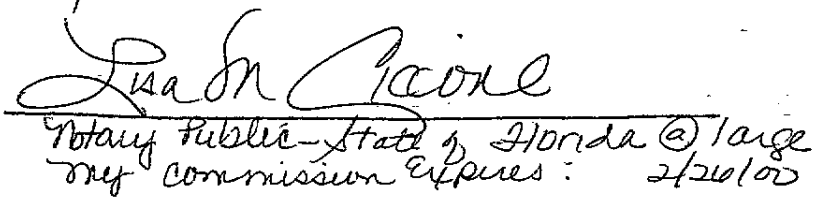 Lisa M Ciccone
Notary Public - State of Florida @ large
My commission Expires: 2/26/00